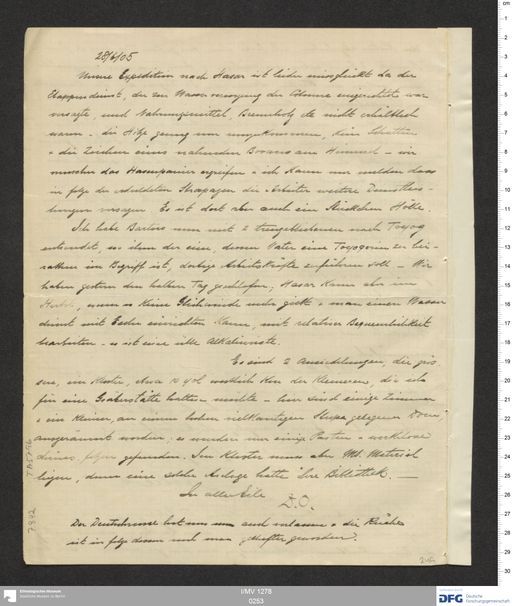 28/6/05
Unsere Expedition nach Hasar ist leider missglückt da der
Etappendienst, der zur Wasserversorgung der Colonne eingerichtet war
versagte, und Nahrungsmittel, Brennholz etc nicht erhältlich
waren - die Hitze genug um umzukommen, kein Schatten
+ die Zeichen eines nahenden Borans am Himmel - wir
mussten das Hasenpanier ergreifen + ich kann nur melden dass
in folge der erduldeten Strapazen die Arbeiter weitere Dienstleis-
tungen versagen. Es ist dort aber auch ein Stückchen Hölle.
Ich habe Bartus nun mit 2 nach Toyoq
entsandt, wo ihm der eine, dessen Vater eine Toyoqerin zu hei-
rathen im Begriff ist, dortige Arbeitskräfte zuführen soll - Wir
haben gestern den halben Tag geschlafen; Hasar kann nur im
Herbst, wenn es keine Gluthwinde mehr giebt + man einen Wasser
dienst mit Eseln einrichten kann, mit relativer Bequemlichkeit
bearbeiten - es ist eine üble
Es sind 2 Ansiedlungen, die grös
sere, ein Kloster, etwa 10 von der kleineren, die ich
für eine Grabstätte halten möchte - hier sind einige Zimmer
+ ein kleiner, an einem hohen vielkantigen Stupa gelegener Dom,
ausgeräumt worden; es wurden nur einige + werthlose
gefunden. Im Kloster muss aber Ms. Material
liegen, denn eine solche Anlage hatte ihre Bibliothek. —
In aller Eile
D.O.
Der hat uns nun auch verlassen + die Küche
ist in folge dessen noch mehr geworden.
TA 5796
7892
I/MV 1278
0253
Ethnologisches Museum
Staatliche Museen zu Berlin
DFG Deutsche
Forschungsgemeinschaft
cm
1
2
3
4
5
6
7
8
9
10
11
12
13
14
15
16
17
18
19
20
21
22
23
24
25
26
27
28
29
30